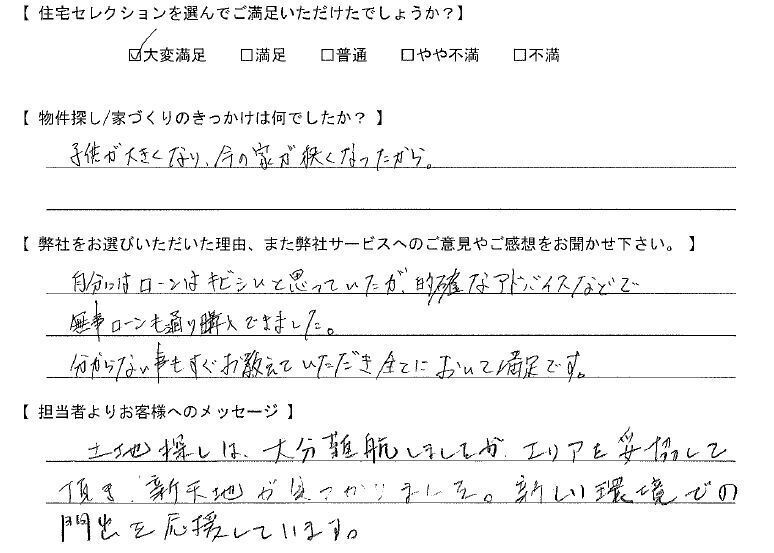 【 住宅セレクションを選んでご満足いただけたでしょうか？】
☑大変満足 □満足 □普通 □やや不満 □不満
【 物件探し/家づくりのきっかけは何でしたか？ 】
子供が大きくなり、今の家が狭くなったから。
【 弊社をお選びいただいた理由、また弊社サービスへのご意見やご感想をお聞かせ下さい。 】
自分にはローンはキビシいと思っていたが、的確なアドバイスなどで
無事ローンも通り購入できました。
分からない事もすぐお教えていただき全てにおいて満足です。
【 担当者よりお客様へのメッセージ 】
土地探しは、大分難航しましたが、エリアを妥協して
頂き、新天地が見つかりました。新しい環境での
門出を応援しています。